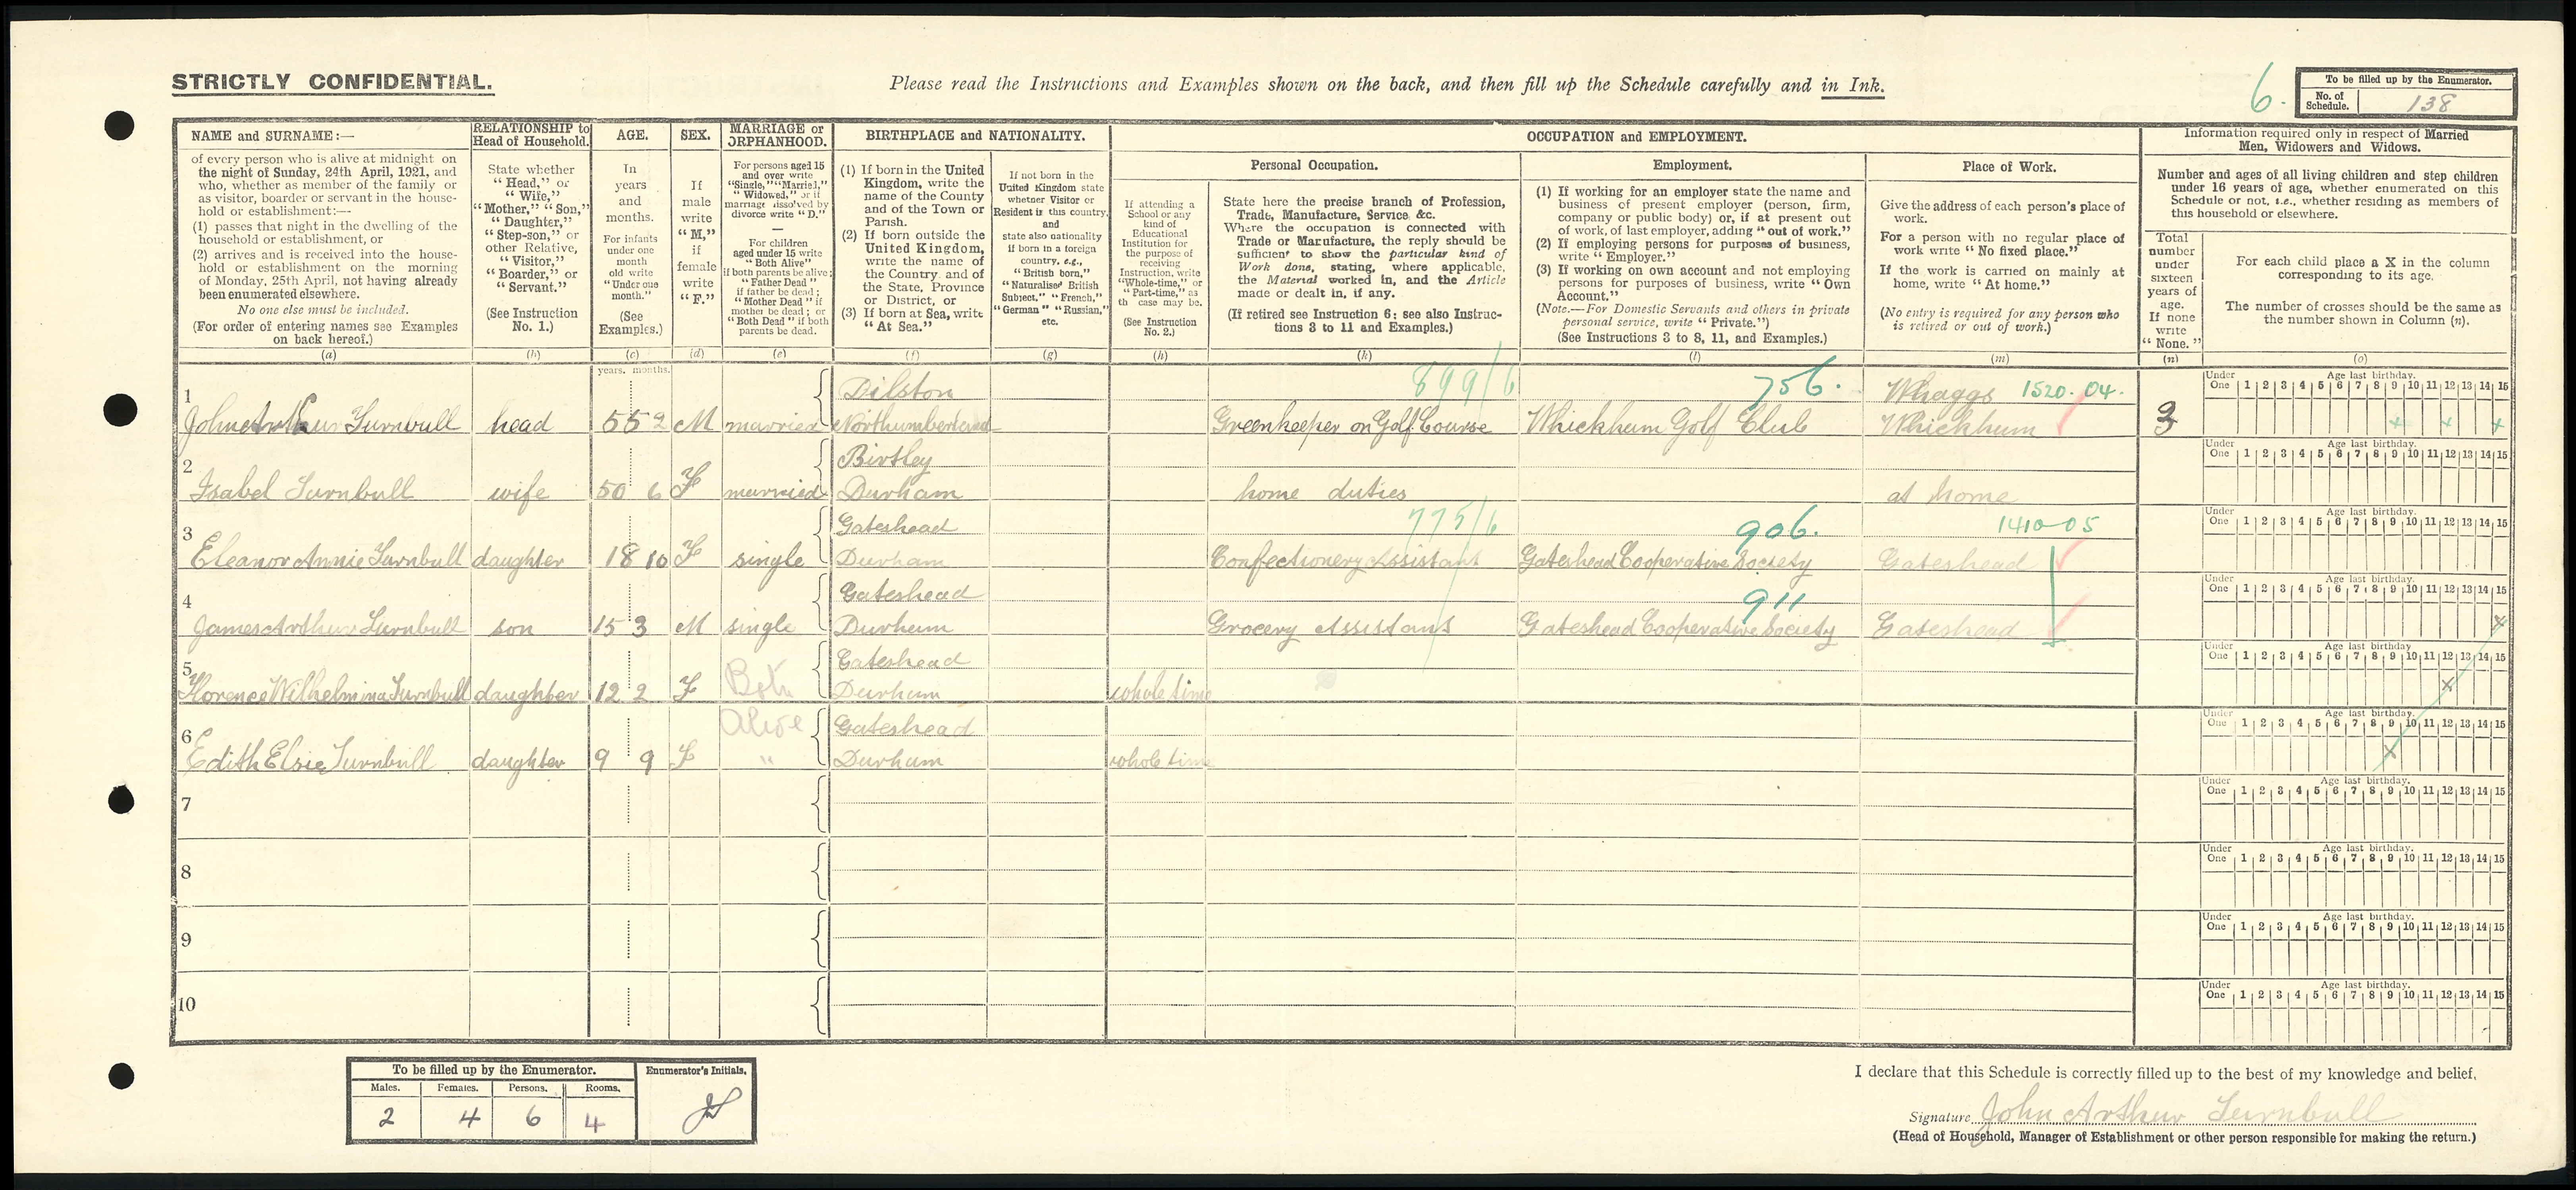 STRICTLY CONFIDENTIAL.
Please read the Instructions and Examples shown on the back, and then fill up the Schedule carefully and in Ink.
6.
To be filled up by the Enumerator.
No. of Schedule. 138
NAME and SURNAME:—
of every person who is alive at midnight on
the night of Sunday, 24th April, 1921, and
who, whether as member of the family or
as visitor, boarder or servant in the house-
hold or establishment:—
(1) passes that night in the dwelling of the
household or establishment, or
(2) arrives and is received into the house-
hold or establishment on the morning
of Monday, 25th April, not having already
been enumerated elsewhere.
No one else must be included.
(For order of entering names see Examples
on back hereof.)
(a)
RELATIONSHIP to
Head of Household.
State whether
"Head," or
"Wife,"
"Mother," "Son,"
"Daughter,"
"Step-son," or
other Relative,
"Visitor,"
"Boarder," or
"Servant."
(See Instruction
No. 1.)
(b)
AGE.
In
years
and
months.
For infants
under one
month
old write
"Under one
month."
(See
Examples.)
(c)
SEX.
If
male
write
"M,"
if
female
write
"F."
(d)
MARRIAGE or
ORPHANHOOD.
For persons aged 15
and over write
"Single," "Married,"
"Widowed," or if
marriage dissolved by
divorce write "D."
—
For children
aged under 15 write
"Both Alive"
if both parents be alive;
"Father Dead"
if father be dead;
"Mother Dead" if
mother be dead; or
"Both Dead" if both
parents be dead.
(e)
BIRTHPLACE and NATIONALITY.
(1) If born in the United
Kingdom, write the
name of the County
and of the Town or
Parish.
(2) If born outside the
United Kingdom,
write the name of
the Country and of
the State, Province
or District, or
(3) If born at Sea, write
"At Sea."
(f)
If not born in the
United Kingdom state
whether Visitor or
Resident in this country,
and
state also nationality
if born in a foreign
country, e.g.,
"British born,"
"Naturalised British
Subject," "French,"
"German" "Russian,"
etc.
(g)
OCCUPATION and EMPLOYMENT.
If attending a
School or any
kind of
Educational
Institution for
the purpose of
receiving
Instruction, write
"Whole-time," or
"Part-time," as
th case may be.
(See Instruction
No. 2.)
(h)
Personal Occupation.
State here the precise branch of Profession,
Trade, Manufacture, Service &c.
Where the occupation is connected with
Trade or Manufacture, the reply should be
sufficient to show the particular kind of
Work done, stating, where applicable,
the Material worked in, and the Article
made or dealt in, if any.
(If retired see Instruction 6: see also Instruc-
tions 3 to 11 and Examples.)
(k)
Employment.
(1) If working for an employer state the name and
business of present employer (person, firm,
company or public body) or, if at present out
of work, of last employer, adding "out of work."
(2) If employing persons for purposes of business,
write "Employer."
(3) If working on own account and not employing
persons for purposes of business, write "Own
Account."
(Note.—For Domestic Servants and others in private
personal service, write "Private.")
(See Instructions 3 to 8, 11, and Examples.)
(l)
Place of Work.
Give the address of each person's place of
work.
For a person with no regular place of
work write "No fixed place."
If the work is carried on mainly at
home, write "At home."
(No entry is required for any person who
is retired or out of work.)
(m)
Information required only in respect of Married
Men, Widowers and Widows.
Number and ages of all living children and step children
under 16 years of age, whether enumerated on this
Schedule or not, i.e., whether residing as members of
this household or elsewhere.
Total
number
under
sixteen
years of
age.
If none
write
"None."
(n)
For each child place a X in the column
corresponding to its age.
The number of crosses should be the same as
the number shown in Column (n).
(o)
years. months.
Under One Age last birthday. 1 2 3 4 5 6 7 8 9 10 11 12 13 14 15
1 Dilston 899/6 756. Whaggs 1520.04.
John Arthur Turnbull head 55 2 M married Northumberland Greenkeeper on Golf Course Whickham Golf Club Whickham 3 + + +
Under One Age last birthday. 1 2 3 4 5 6 7 8 9 10 11 12 13 14 15
2 Birtley
Isabel Turnbull wife 50 6 F married Durham home duties at home
Under One Age last birthday. 1 2 3 4 5 6 7 8 9 10 11 12 13 14 15
3 Gateshead 775/6 906. 1410-05
Eleanor Annie Turnbull daughter 18 10 F single Durham Confectionery Assistant Gateshead Cooperative Society Gateshead
Under One Age last birthday. 1 2 3 4 5 6 7 8 9 10 11 12 13 14 15
4 Gateshead 911
James Arthur Turnbull son 15 3 M single Durham Grocery Assistant Gateshead Cooperative Society Gateshead x
Under One Age last birthday 1 2 3 4 5 6 7 8 9 10 11 12 13 14 15
5 Gateshead
Florence Wilhelmina Turnbull daughter 12 2 F Both Durham whole time x
Under One Age last birthday. 1 2 3 4 5 6 7 8 9 10 11 12 13 14 15
6 Alive Gateshead
Edith Elsie Turnbull daughter 9 9 F " Durham whole time x
Under One Age last birthday. 1 2 3 4 5 6 7 8 9 10 11 12 13 14 15
7
Under One Age last birthday. 1 2 3 4 5 6 7 8 9 10 11 12 13 14 15
8
Under One Age last birthday. 1 2 3 4 5 6 7 8 9 10 11 12 13 14 15
9
Under One Age last birthday. 1 2 3 4 5 6 7 8 9 10 11 12 13 14 15
10
To be filled up by the Enumerator.
Males. Females. Persons. Rooms.
2 4 6 4
Enumerator's Initials.
I declare that this Schedule is correctly filled up to the best of my knowledge and belief,
Signature John Arthur Turnbull
(Head of Household, Manager of Establishment or other person responsible for making the return.)